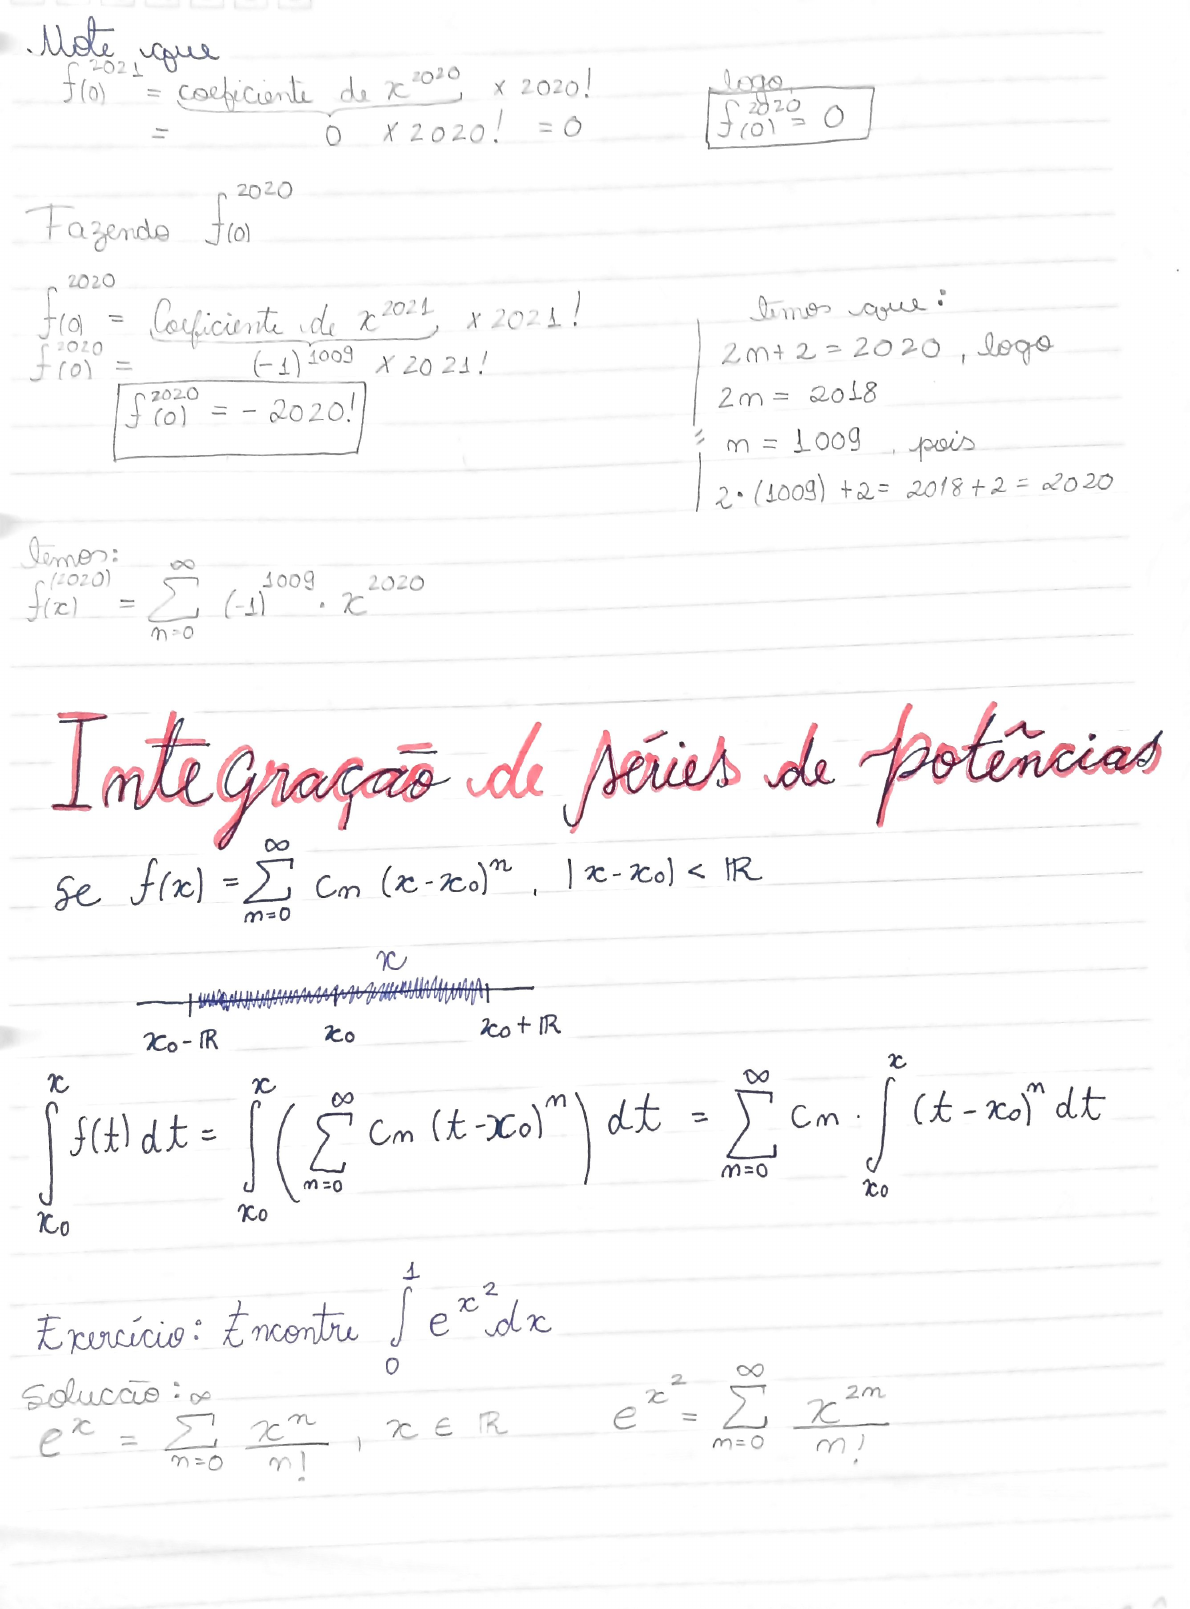 Note que
f(0)^2021 = coeficiente de x^2020 × 2020!
= 0 × 2020! = 0
logo,
f(0)^2020 = 0
Fazendo f(0)^2020
f(0)^2020 = Coeficiente de x^2021 × 2021!
f(0)^2020 = (-1)^1009 × 2021!
f(0)^2020 = - 2020!
temos que:
2n+2 = 2020, logo
2n = 2018
n = 1009, pois
2·(1009) +2 = 2018+2 = 2020
temos:
f(x)^(2020) = ∑_{n=0}^{∞} (-1)^1009 · x^2020
Integração de séries de potências
se f(x) = ∑_{n=0}^{∞} Cn (x-x₀)^n, |x-x₀| < ℝ
x
x₀-ℝ x₀ x₀+ℝ
∫_{x₀}^{x} f(t) dt = ∫_{x₀}^{x} (∑_{n=0}^{∞} Cn (t-x₀)^n) dt = ∑_{n=0}^{∞} Cn · ∫_{x₀}^{x} (t-x₀)^n dt
Exercício: Encontre ∫_{0}^{1} e^{x^2} dx
Solução:
e^x = ∑_{n=0}^{∞} x^n/n!, x ∈ ℝ e^{x^2} = ∑_{n=0}^{∞} x^{2n}/n!